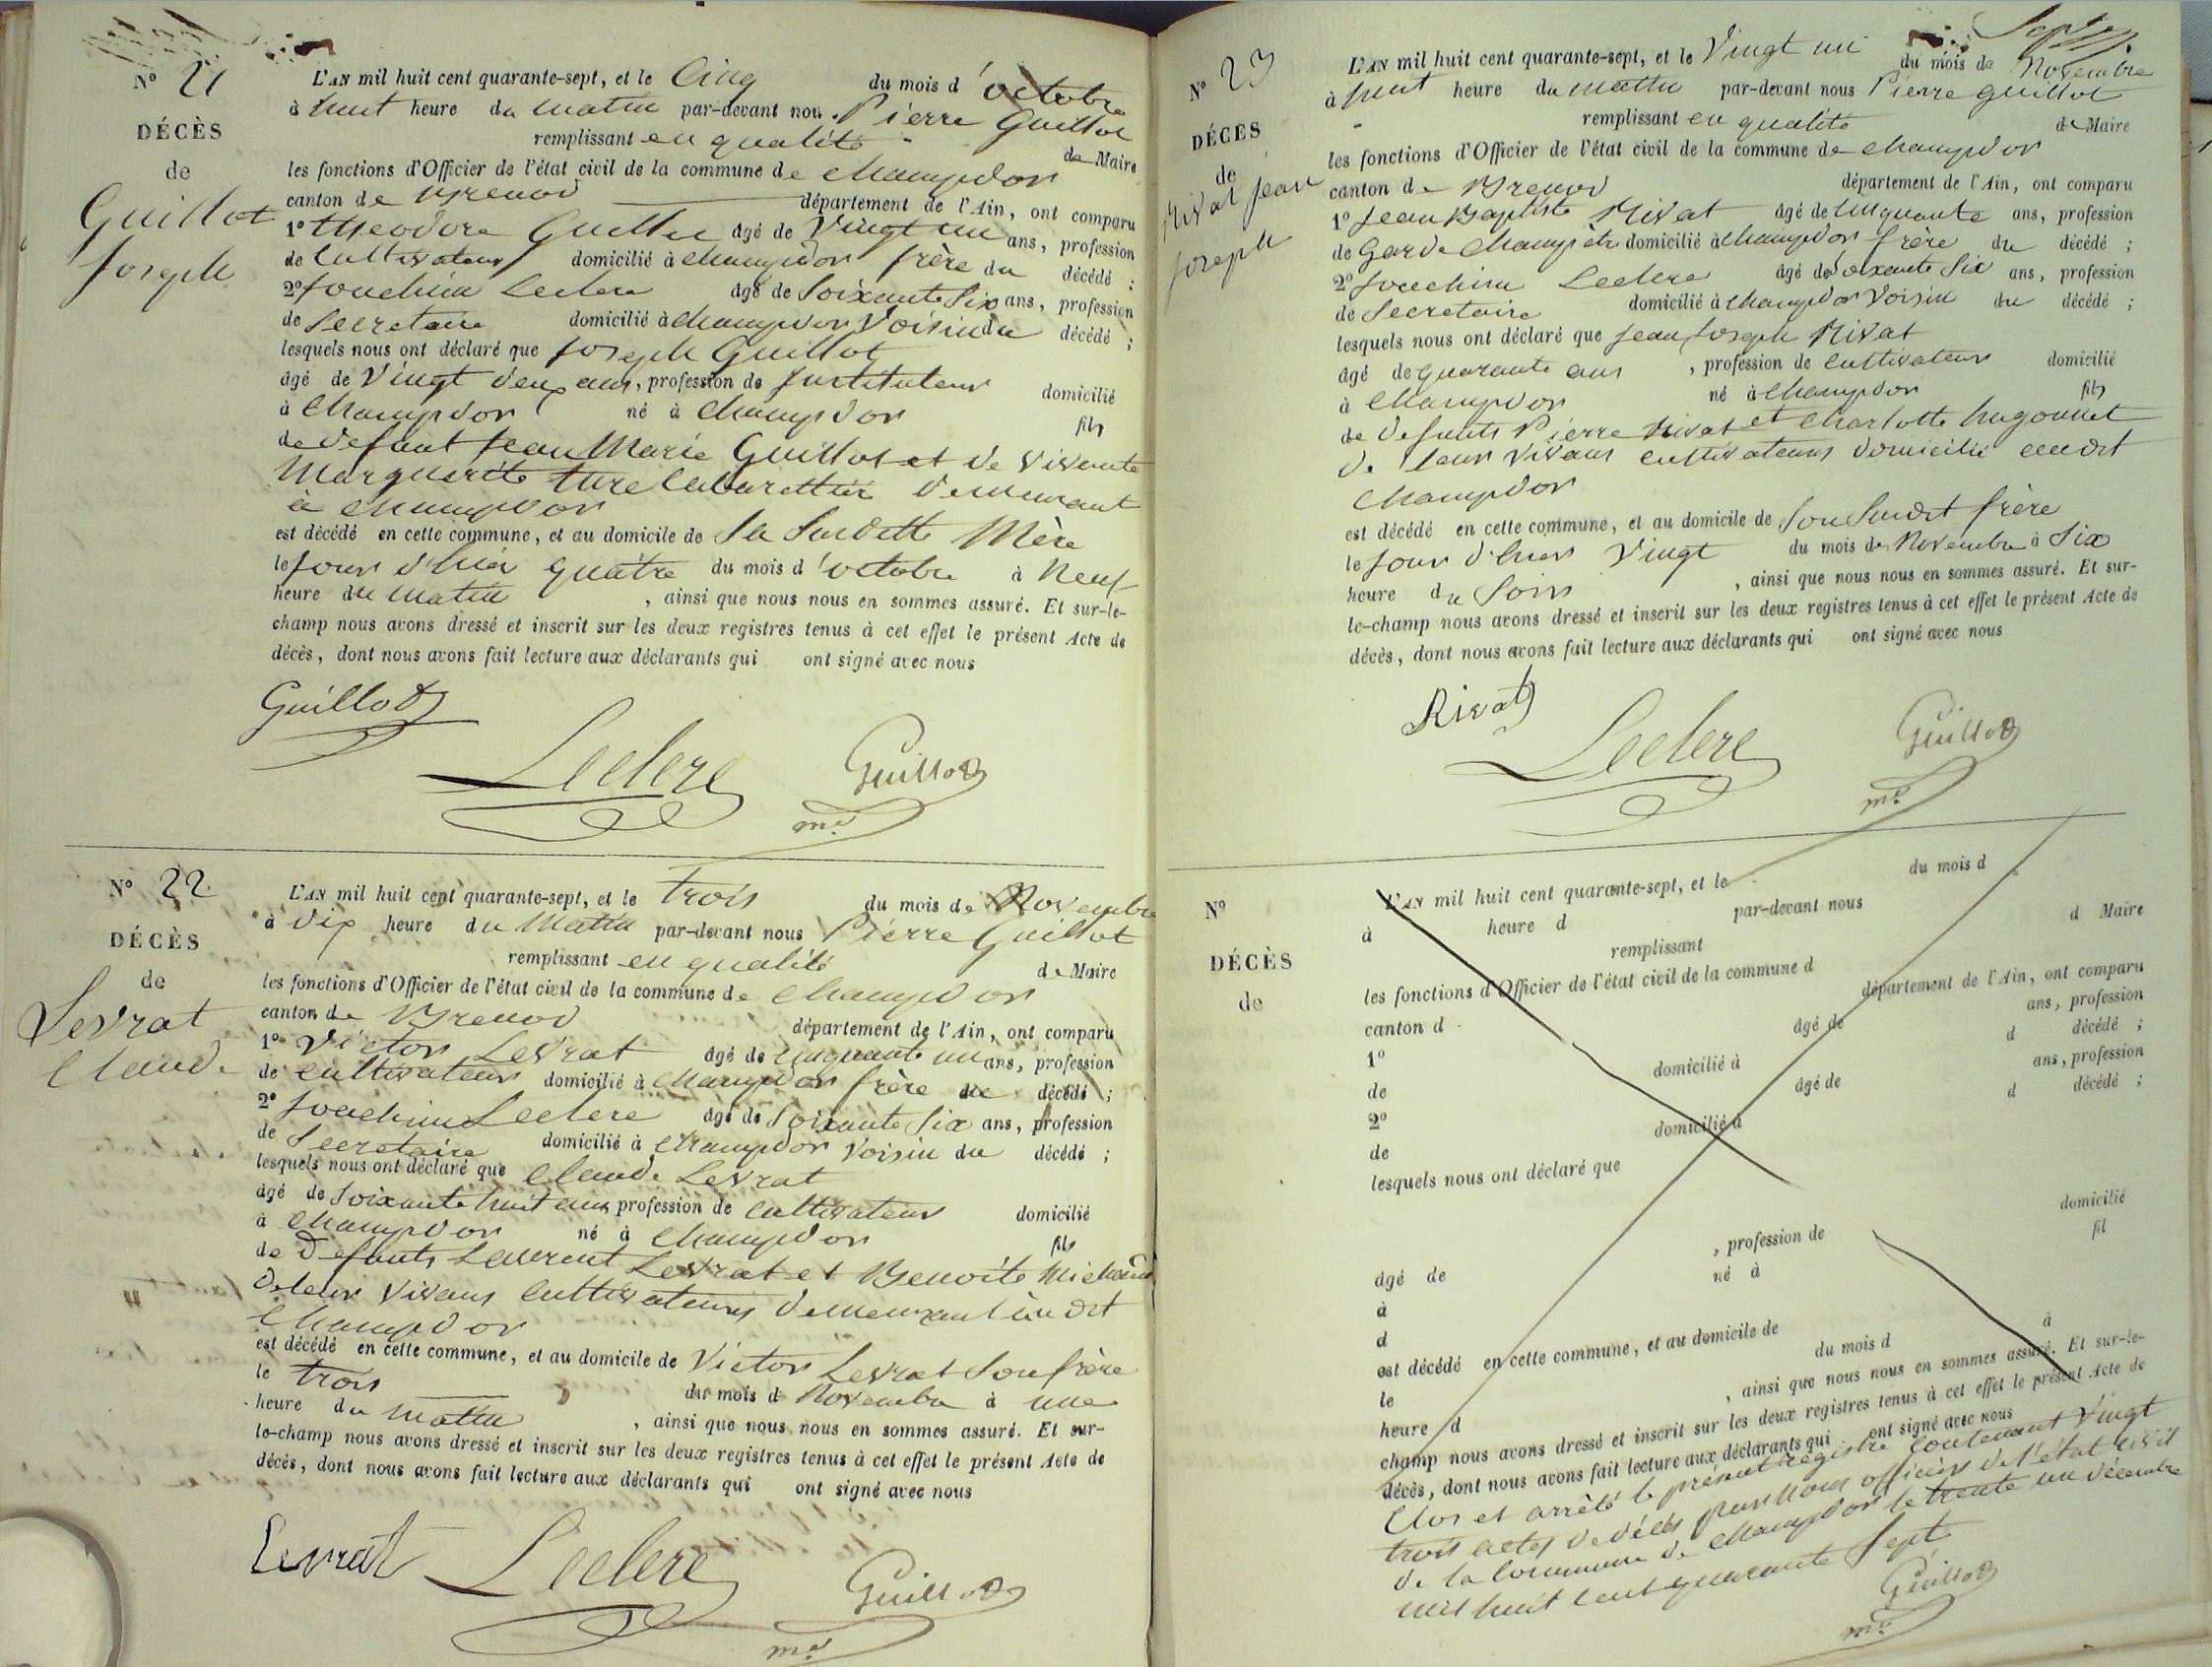 N° 21
DÉCÈS
de
Guillot
Joseph
L'AN mil huit cent quarante-sept, et le Cinq du mois d'octobre
à huit heure du matin par-devant nous Pierre Guillot
remplissant en qualité de Maire
les fonctions d'Officier de l'état civil de la commune de Champdor
canton de Brenod département de l'Ain, ont comparu
1° Theodore Guillot agé de Vingt un ans, profession
de Cultivateur domicilié à Champdor frère du décédé ;
2° Joachim Leclerc agé de Soixante Six ans, profession
de Secretaire domicilié à Champdor Voisin du décédé ;
lesquels nous ont déclaré que Joseph Guillot
âgé de Vingt deux ans, profession de Instituteur domicilié
à Champdor né à Champdor fils
de defunt Jean Marie Guillot et de vivante
Marguerite Cabarettier demeurant
à Champdor
est décédé en cette commune, et au domicile de Sa Susdette Mère
le Jour d'hier quatre du mois d'octobre à Neuf
heure du matin , ainsi que nous nous en sommes assuré. Et sur-le-
champ nous avons dressé et inscrit sur les deux registres tenus à cet effet le présent Acte de
décès, dont nous avons fait lecture aux déclarants qui ont signé avec nous
Guillot
Leclerc Guillot
me
N° 22
DÉCÈS
de
Levrat
Claude
L'AN mil huit cent quarante-sept, et le trois du mois de Novembre
à dix heure du Matin par-devant nous Pierre Guillot
remplissant en qualité de Maire
les fonctions d'Officier de l'état civil de la commune de Champdor
canton de Brenod département de l'Ain, ont comparu
1° Victor Levrat agé de Cinquante un ans, profession
de Cultivateur domicilié à Champdor frère du décédé ;
2° Joachim Leclerc agé de Soixante Six ans, profession
de Secretaire domicilié à Champdor Voisin du décédé ;
lesquels nous ont déclaré que Claude Levrat
âgé de Soixante huit ans profession de Cultivateur domicilié
à Champdor né à Champdor fils
de Defunts Laurent Levrat et Benoite
de leur vivans Cultivateurs demeurant au dit
Champdor
est décédé en cette commune, et au domicile de Victor Levrat Son frère
le trois du mois de Novembre à une
heure du matin , ainsi que nous nous en sommes assuré. Et sur-
le-champ nous avons dressé et inscrit sur les deux registres tenus à cet effet le présent Acte de
décès, dont nous avons fait lecture aux déclarants qui ont signé avec nous
Levrat Leclerc Guillot
me
N° 23
DÉCÈS
de
Rivat Jean
Joseph
L'AN mil huit cent quarante-sept, et le Vingt un du mois de Novembre
à huit heure du matin par-devant nous Pierre Guillot
remplissant en qualité de Maire
les fonctions d'Officier de l'état civil de la commune de Champdor
canton de Brenod département de l'Ain, ont comparu
1° Jean Baptiste Rivat agé de Cinquante ans, profession
de Garde Champêtre domicilié à Champdor frère du décédé ;
2° Joachim Leclerc agé de Soixante Six ans, profession
de Secretaire domicilié à Champdor Voisin du décédé ;
lesquels nous ont déclaré que Jean Joseph Rivat
âgé de quarante ans , profession de Cultivateur domicilié
à Champdor né à Champdor fils
de defunts Pierre Rivat et Charlotte hugonnet
de leur vivans cultivateurs domicilié audit
Champdor
est décédé en cette commune, et au domicile de Son Susdit frère
le Jour d'hier Vingt du mois de Novembre à Six
heure du Soir , ainsi que nous nous en sommes assuré. Et sur-
le-champ nous avons dressé et inscrit sur les deux registres tenus à cet effet le présent Acte de
décès, dont nous avons fait lecture aux déclarants qui ont signé avec nous
Rivat
Leclerc Guillot
me
N°
DÉCÈS
de
L'AN mil huit cent quarante-sept, et le du mois d
à heure d par-devant nous
remplissant d Maire
les fonctions d'Officier de l'état civil de la commune d
canton d département de l'Ain, ont comparu
1° agé de ans, profession
de domicilié à d décédé ;
2° agé de ans, profession
de domicilié à d décédé ;
lesquels nous ont déclaré que
âgé de , profession de domicilié
à né à fil
d
est décédé en cette commune, et au domicile de
le du mois d à
heure d , ainsi que nous nous en sommes assuré. Et sur-le-
champ nous avons dressé et inscrit sur les deux registres tenus à cet effet le présent Acte de
décès, dont nous avons fait lecture aux déclarants qui ont signé avec nous
Clos et arrêté le présent registre contenant Vingt
trois actes de décès par nous officier de l'état civil
de la Commune de Champdor le trente un décembre
mil huit cent quarante Sept
Guillot
me